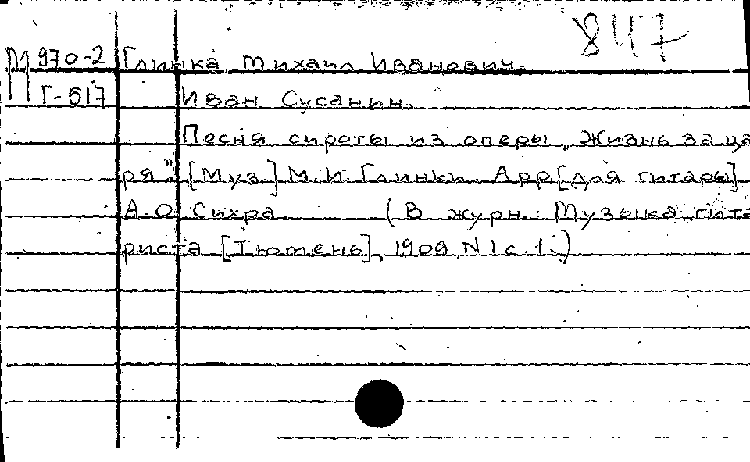 847
П 970-2 Глинка, Михаил Иванович.
Г-517 Иван Сусанин.
Песня сироты из оперы „Жизнь за ца
ря" [Муз] М.И Глинки. Арр [для гитары]
А.О Сихра (В журн. Музыка гита
риста [Тюмень], 1909, N 1 с 1.)